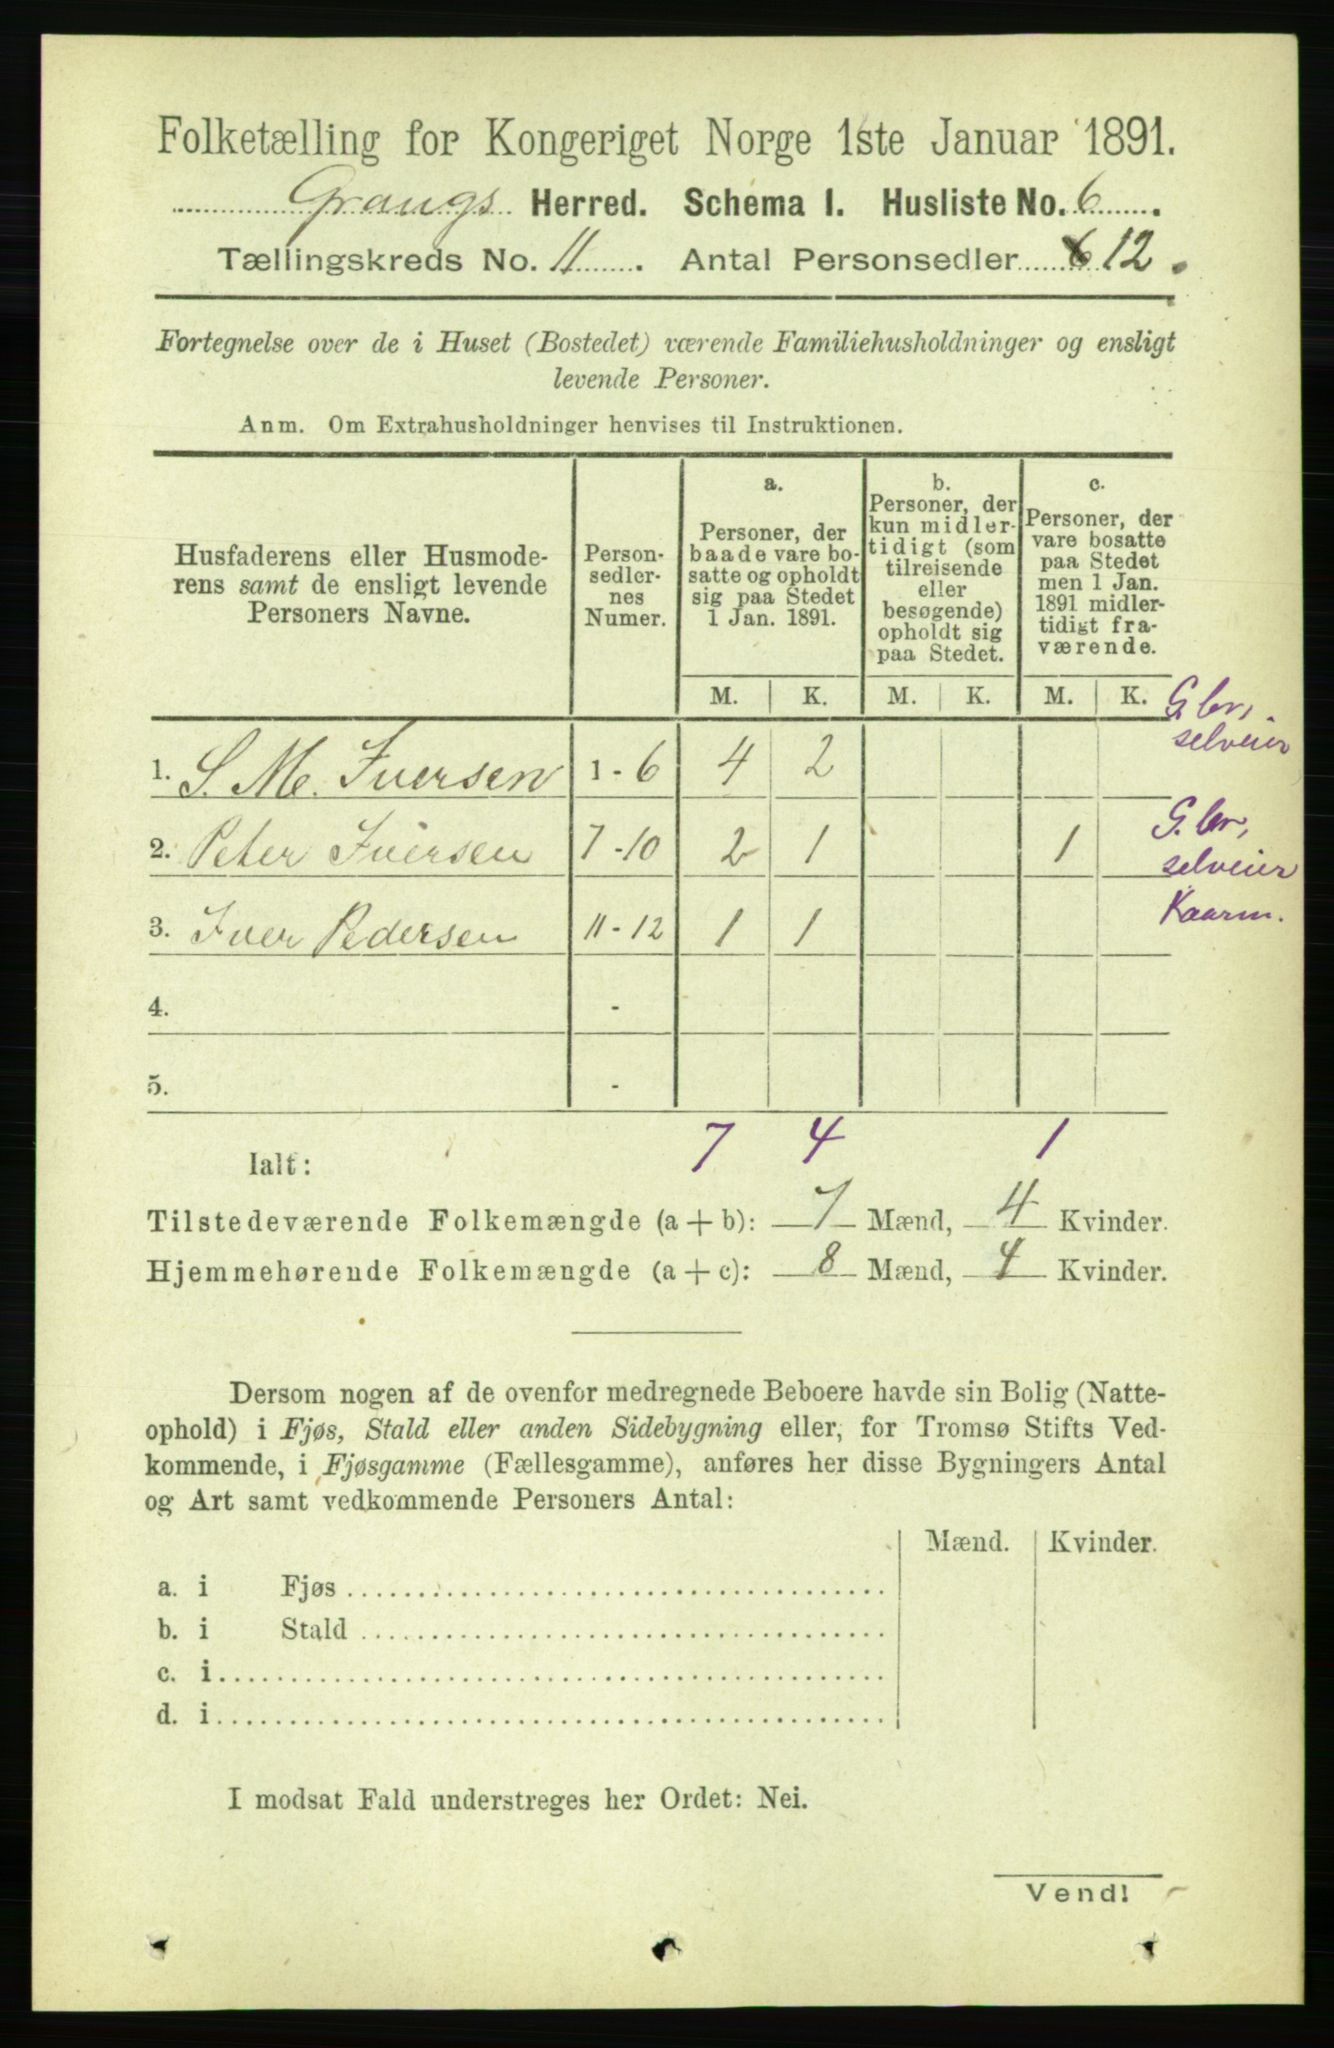 Folketælling for Kongeriget Norge 1ste Januar 1891.
Graugs Herred. Schema I. Husliste No. 6
Tællingskreds No. 11. Antal Personsedler 6 12.
Fortegnelse over de i Huset (Bostedet) værende Familiehusholdninger og ensligt
levende Personer.
Anm. Om Extrahusholdninger henvises til Instruktionen.
Husfaderens eller Husmode-
rens samt de ensligt levende
Personers Navne.
Person-
sedler-
nes
Numer.
a.
Personer, der
baade vare bo-
satte og opholdt
sig paa Stedet
1 Jan. 1891.
b.
Personer, der
kun midler-
tidigt (som
tilreisende
eller
besøgende)
opholdt sig
paa Stedet.
c.
Personer, der
vare bosatte
paa Stedet
men 1 Jan.
1891 midler-
tidigt fra-
værende.
M. K. M. K. M. K.
G.br,
selveier
1. S. M. Iversen 1-6 4 2
2. Peter Iversen 7-10 2 1 1
G.br,
selveier
3. Iver Pedersen 11-12 1 1
Kaarm.
4. -
5. -
Ialt: 7 4 1
Tilstedeværende Folkemængde (a + b): 7 Mænd, 4 Kvinder.
Hjemmehørende Folkemængde (a + c): 8 Mænd, 4 Kvinder.
Dersom nogen af de ovenfor medregnede Beboere havde sin Bolig (Natte-
ophold) i Fjøs, Stald eller anden Sidebygning eller, for Tromsø Stifts Ved-
kommende, i Fjøsgamme (Fællesgamme), anføres her disse Bygningers Antal
og Art samt vedkommende Personers Antal:
Mænd. Kvinder.
a. i Fjøs
b. i Stald
c. i
d. i
I modsat Fald understreges her Ordet: Nei.
Vend!